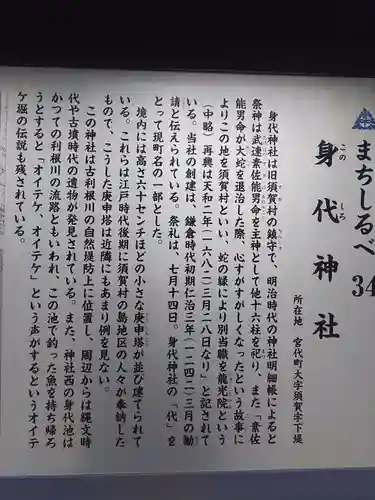 まちしるべ 34
このしろ
身代神社
所在地 宮代町大字須賀字下堤
身代神社は旧須賀村の鎮守で、明治時代の神社明細帳によると
祭神は武速素佐能男命を主神として他十六柱を祀り、また「素佐
能男命が大蛇を退治した際、心すがすがしくなったという故事に
よりこの地を須賀村といい、蛇の縁により別当職を龍光院という
(中略)再興は天和二年(一六八二)三月二八日なり」と記されて
いる。当社の創建は、鎌倉時代初期仁治三年(一二四二)三月の勧
請と伝えられている。祭礼は、七月十四日。身代神社の「代」を
とって現町名の一部とした。
境内には高さ六十センチほどの小さな庚申塔が並び建てられて
いる。これらは江戸時代後期に須賀村の島地区の人々が奉納した
もので、こうした庚申塔は近隣にもあまり例を見ない。
この神社は古利根川の自然堤防上に位置し、周辺からは縄文時
代や古墳時代の遺物が発見されている。また、神社西の身代池は
かつての利根川の流路ともいわれ、この池で釣った魚を持ち帰ろ
うとすると「オイテケ、オイテケ」という声がするというオイテ
ケ堀の伝説も残されている。